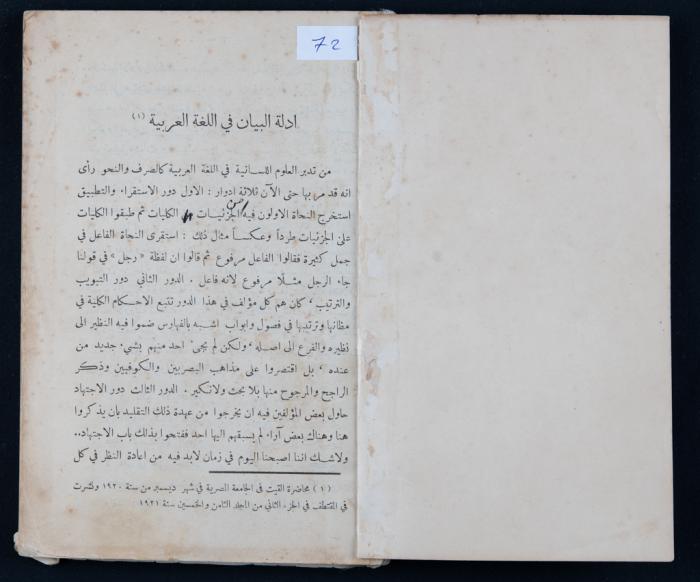 72
ادلة البيان في اللغة العربية (١)
من تدبر العلوم اللسانية في اللغة العربية كالصرف والنحو رأى
انه قد مر بها حتى الآن ثلاثة ادوار : الاول دور الاستقراء والتطبيق
استخرج النحاة الاولون فيه الجزئيات من الكليات ثم طبقوا الكليات
على الجزئيات طرداً وعكساً مثال ذلك : استقرى النحاة الفاعل في
جمل كثيرة فقالوا الفاعل مرفوع ثم قالوا ان لفظة « رجل » في قولنا
جاء الرجل مثلًا مرفوع لانه فاعل . الدور الثاني دور التبويب
والترتيب ، كان هم كل مؤلف في هذا الدور تتبع الاحكام الكلية في
مظانها وترتيبها في فصول وابواب اشبه بالفهارس ضموا فيه النظير الى
نظيره والفرع الى اصله ، ولكن لم يجىء احد منهم بشيء جديد من
عنده ، بل اقتصروا على مذاهب البصريين والكوفيين وذكر
الراجح والمرجوح منها بلا بحث ولا نكير . الدور الثالث دور الاجتهاد
حاول بعض المؤلفين فيه ان يخرجوا من عهدة ذلك التقليد بان يذكروا
هنا وهناك بعض آراء لم يسبقهم اليها احد ففتحوا بذلك باب الاجتهاد..
ولاشك اننا اصبحنا اليوم في زمان لابد فيه من اعادة النظر في كل
( ١ ) محاضرة القيت في الجامعة المصرية في شهر ديسمبر من سنة ١٩٢٠ ونشرت
في المقتطف في الجزء الثاني من المجلد الثامن والخمسين سنة ١٩٢١